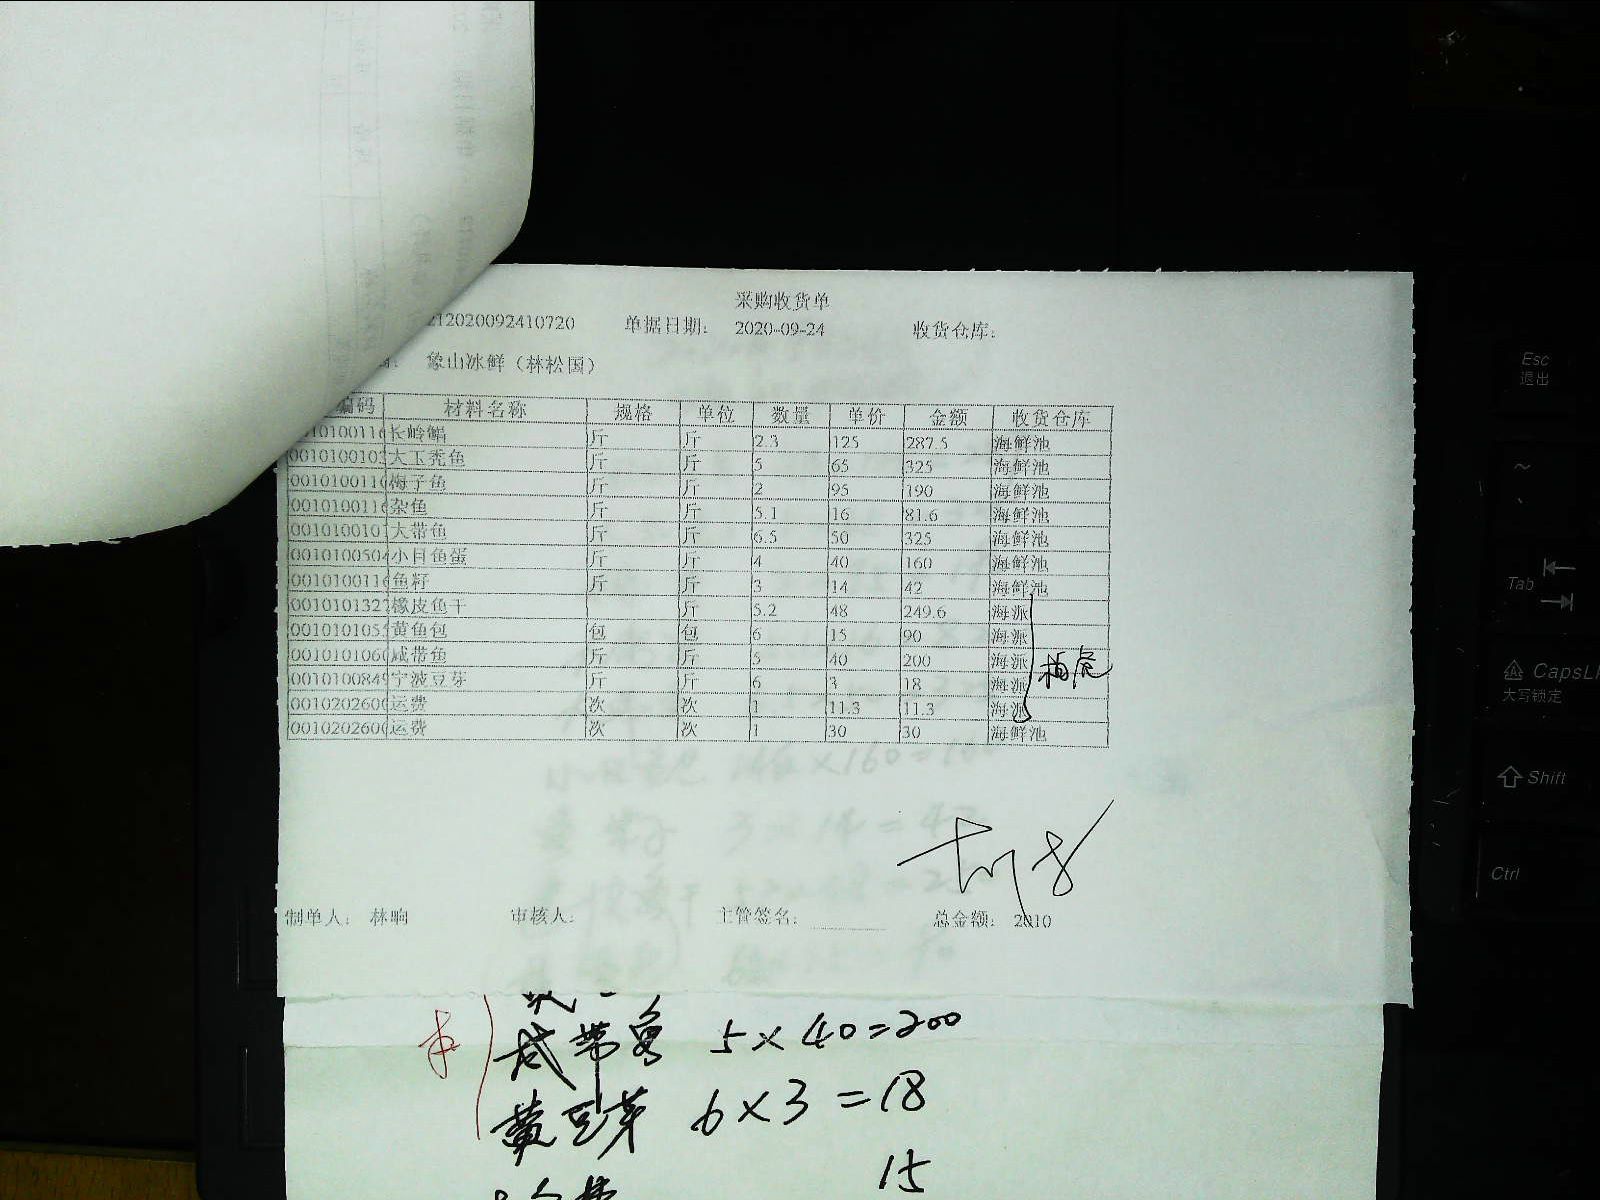 采购收货单
212020092410720 单据日期： 2020-09-24 收货仓库：
象山冰鲜（林松国）
编码 材料名称 规格 单位 数量 单价 金额 收货仓库
0010100116 长岭鲳 斤 斤 2.3 125 287.5 海鲜池
0010100103 大玉秃鱼 斤 斤 5 65 325 海鲜池
0010100110 梅子鱼 斤 斤 2 95 190 海鲜池
0010100116 杂鱼 斤 斤 5.1 16 81.6 海鲜池
0010100101 大带鱼 斤 斤 6.5 50 325 海鲜池
0010100504 小目鱼蛋 斤 斤 4 40 160 海鲜池
0010100116 鱼籽 斤 斤 3 14 42 海鲜池
0010101327 橡皮鱼干 斤 5.2 48 249.6 海派
0010101055 黄鱼包 包 包 6 15 90 海派
0010101060 咸带鱼 斤 斤 5 40 200 海派
0010100849 宁波豆芽 斤 斤 6 3 18 海派
0010202600 运费 次 次 1 11.3 11.3 海派
0010202600 运费 次 次 1 30 30 海鲜池
制单人： 林晌 审核人： 主管签名： 总金额： 2010
咸带鱼 5×40=200
黄豆芽 6×3=18
15
Esc
退出
~
Tab
CapsL
大写锁定
Shift
Ctrl